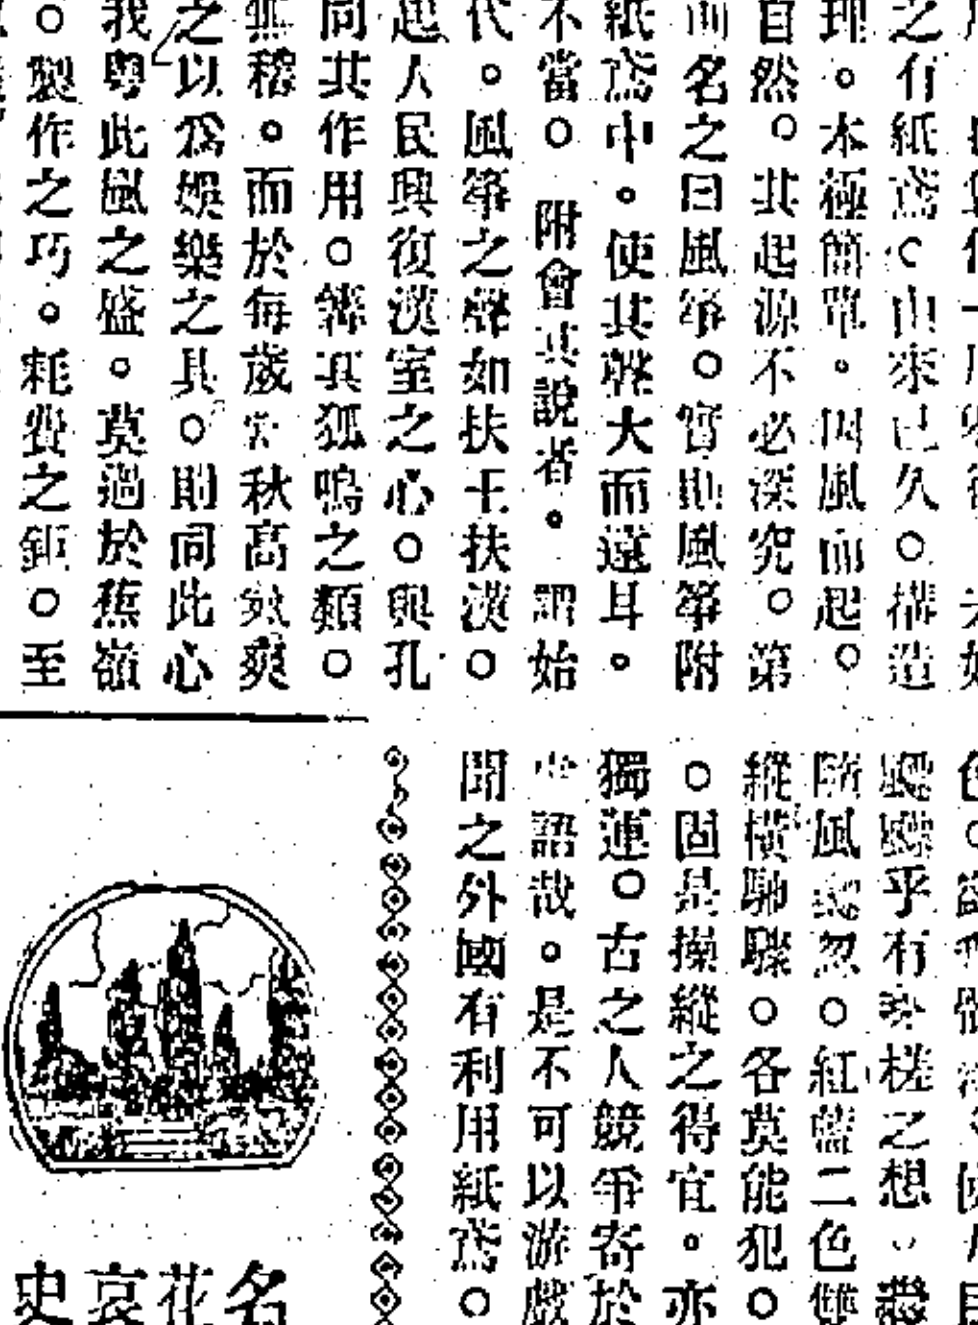 之有紙鳶。由來已久。構造
理。本極簡單。因風而起。
自然。其起源不必深究。第
而名之曰風箏。實則風箏附
紙鳶中。使其聲大而遠耳。
不當。附會其說者。謂始
代。風箏之聲如扶王扶漢。
起人民興復漢室之心。與孔
同其作用。篝其狐鳴之類。
無稽。而於每歲 秋高氣爽
之以為娛樂之具。則同此心
我粵此風之盛。莫過於蕉嶺
。製作之巧。耗費之鉅。至
飄飄乎有 槎之想
隨風 忽。紅藍二色雙
縱橫馳驟。各莫能犯。
。固是操縱之得宜。亦
獨運。古之人競爭寄於
語哉。是不可以游戲
聞之外國有利用紙鳶。
名花哀史